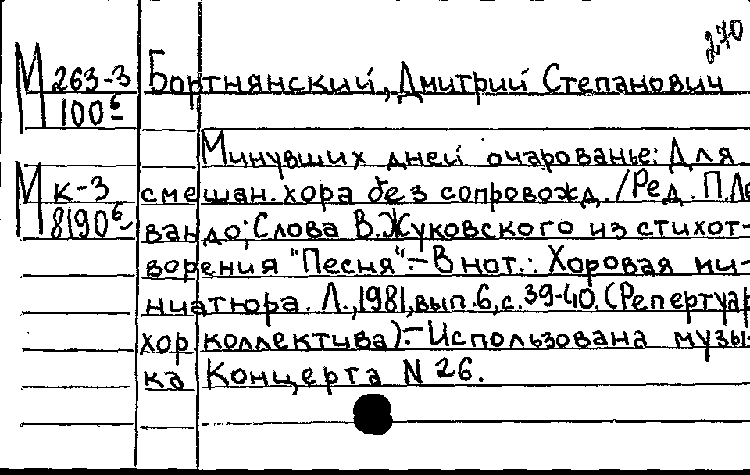 270
М 263-3 Бортнянский, Дмитрий Степанович
100б
Минувших дней очарованье: Для
М К-3 смешан. хора без сопровожд. /Ред. П.Ле
8190б вандо; Слова В.Жуковского из стихот-
ворения "Песня".- В нот.: Хоровая ми-
ниатюра. Л., 1981, вып. 6, с. 39-40. (Репертуар
хор коллектива).- Использована музы-
ка Концерта N 26.